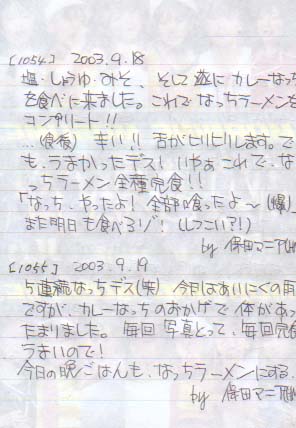 [1054] 2003.9.18
塩・しょうゆ・みそ、そして遂に カレーなっち
を食べに来ました。これで なっちラーメンを
コンプリート!!
…(食後) 辛い!! 舌がヒリヒリします。で
も、うまかったデス! いやぁ これで、な
っちラーメン 全種完食!!
「なっち、やったよ! 全部喰ったよ〜(爆)
また明日も食べるゾ! (しつこい?!)
by 保田マニア
[1055] 2003.9.19
5連続なっちデス(笑) 今日はあいにくの雨
ですが、カレーなっちのおかげで 体があっ
たまりました。毎回 写真とって、毎回完食
うまいので!
今日の晩ごはんも、なっちラーメンにする
by 保田マニア